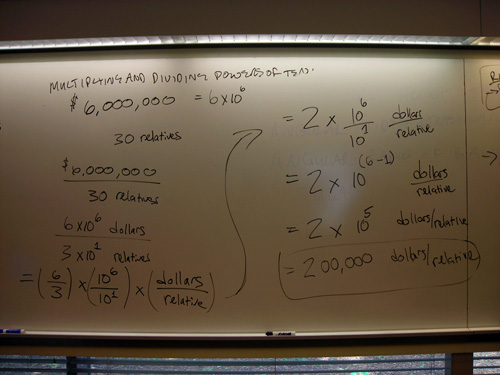 MULTIPLYING AND DIVIDING POWERS OF TEN.
$6,000,000 = 6x10^6
30 relatives
$6,000,000
30 relatives
6x10^6 dollars
3 x10^1 relatives
= (6/3) x (10^6/10^1) x (dollars/relative)
= 2 x 10^6/10^1 dollars/relative
= 2 x 10^(6-1) dollars/relative
= 2 x 10^5 dollars/relative
= 200,000 dollars/relative